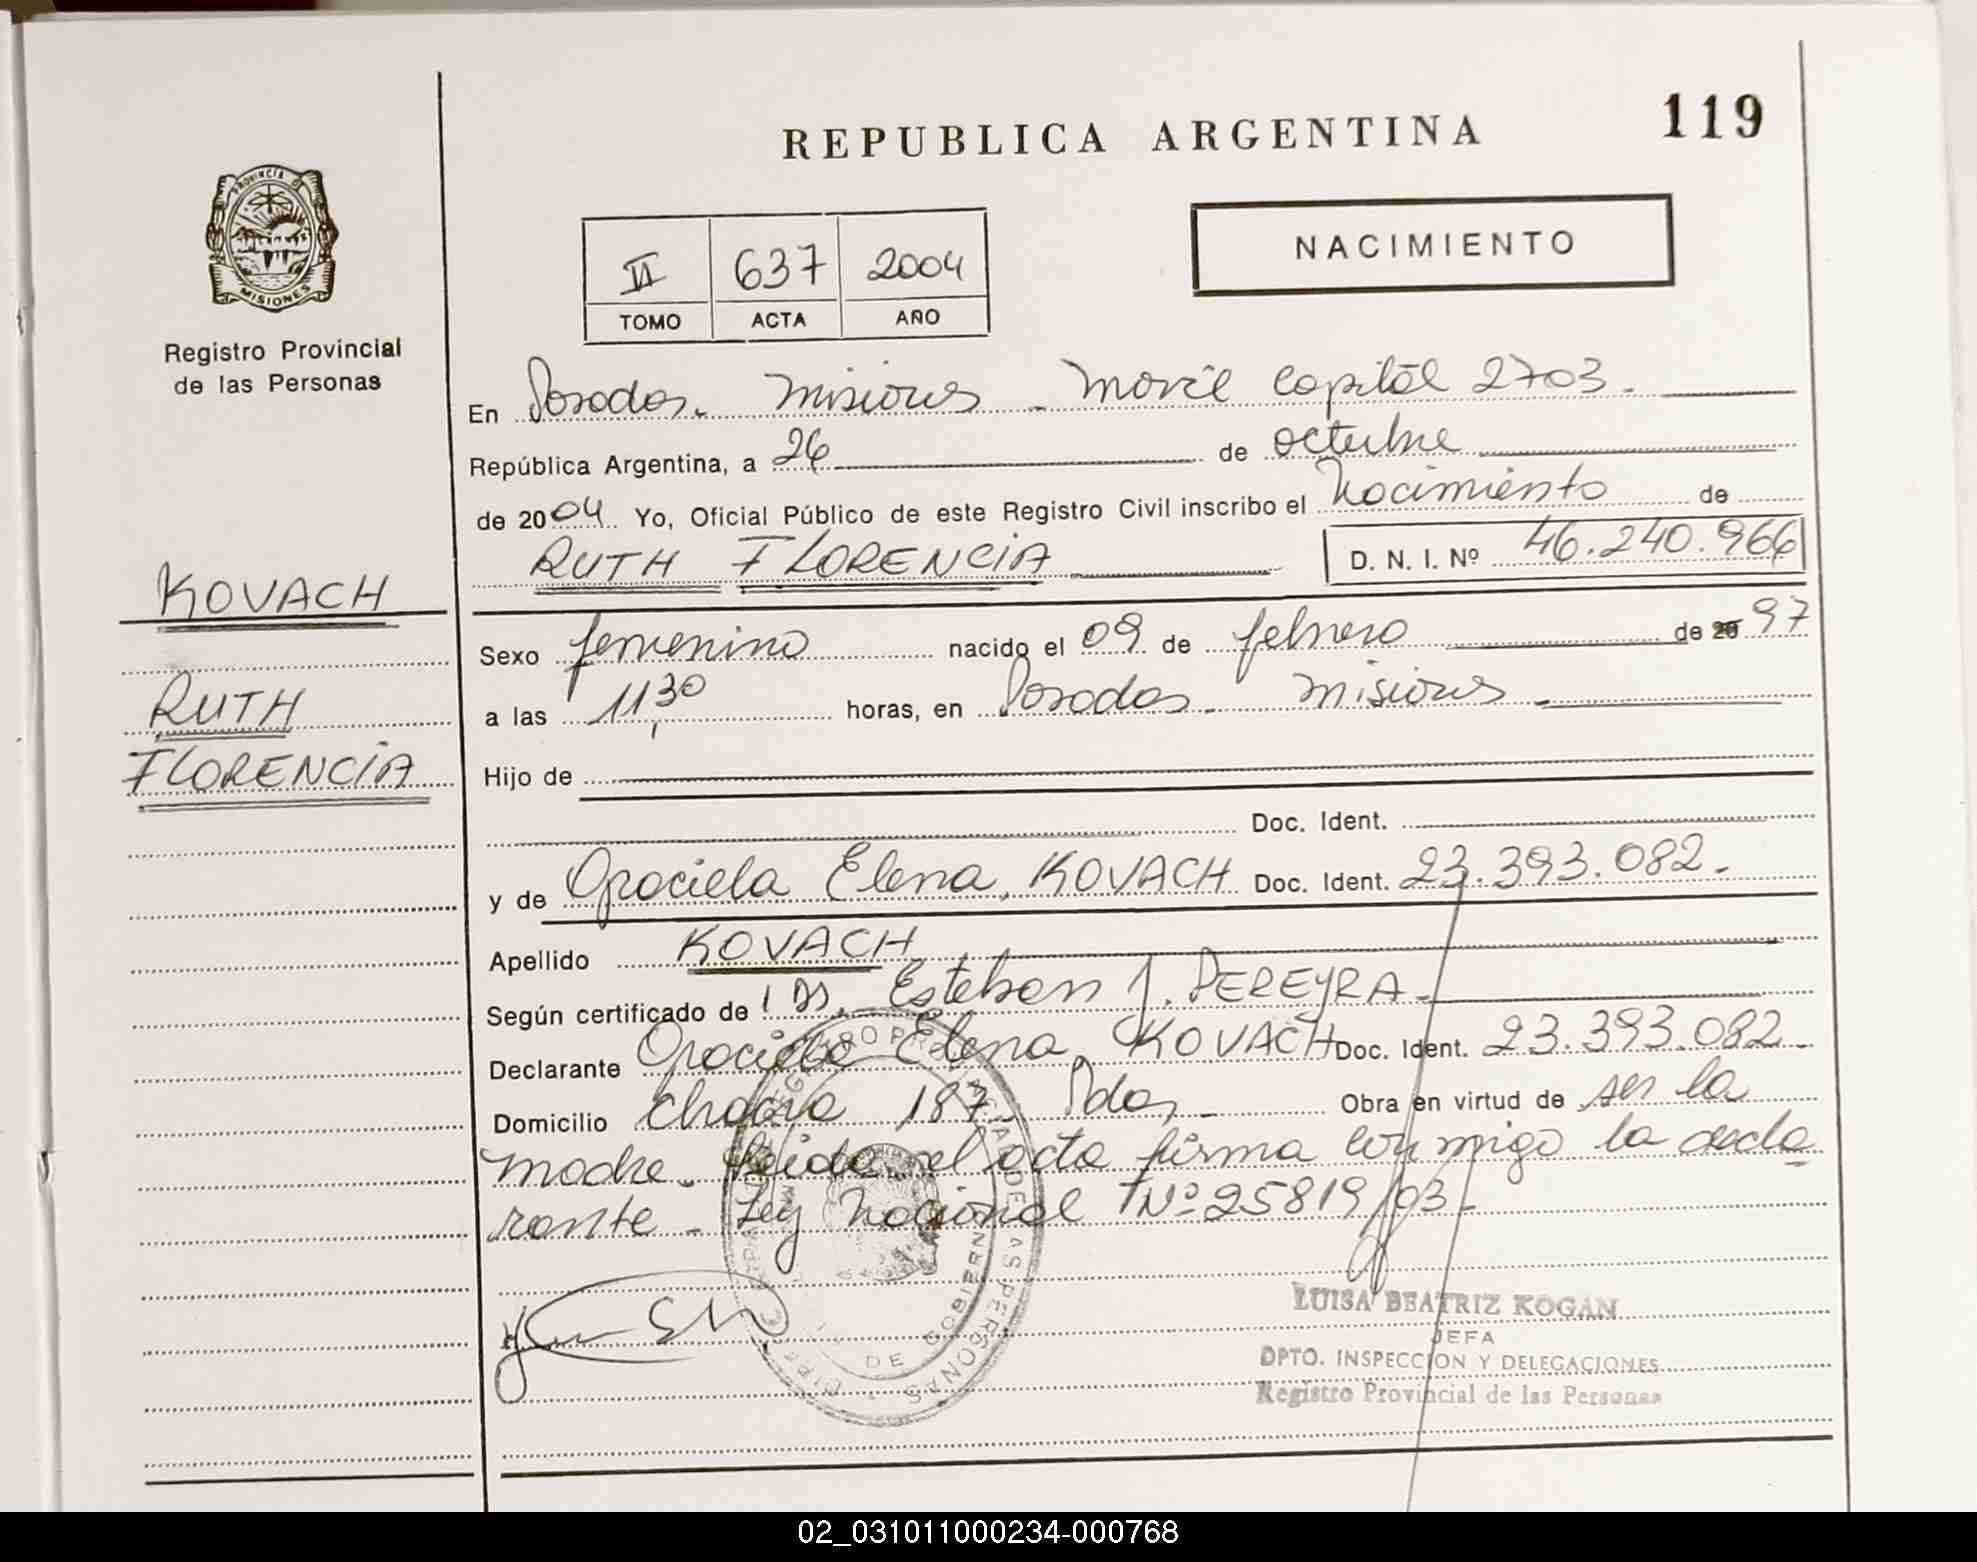 REPUBLICA ARGENTINA
119
PROVINCIA DE
MISIONES
Registro Provincial
de las Personas
II 637 2004
TOMO ACTA AÑO
NACIMIENTO
En Posadas. Misiones - Movil Capital 2703.
República Argentina, a 26 de octubre
de 2004 Yo, Oficial Público de este Registro Civil inscribo el Nacimiento de
RUTH FLORENCIA D. N. I. Nº 46.240.966
KOVACH
RUTH
FLORENCIA
Sexo femenino nacido el 09 de febrero de 20 97
a las 11,30 horas, en Posadas - Misiones -
Hijo de
Doc. Ident.
y de Graciela Elena, KOVACH Doc. Ident. 23.393.082.-
Apellido KOVACH
Según certificado de Esteban J. PEREYRA -
Declarante Graciela Elena, KOVACH Doc. Ident. 23.393.082 -
Domicilio Chacra 187 - Pdas - Obra en virtud de ser la
madre. Leida el acta firma conmigo la decla
rante - Ley Nacional Nº 25819/03 -
LUISA BEATRIZ KOGAN
JEFA
DPTO. INSPECCION Y DELEGACIONES
Registro Provincial de las Personas
02_031011000234-000768